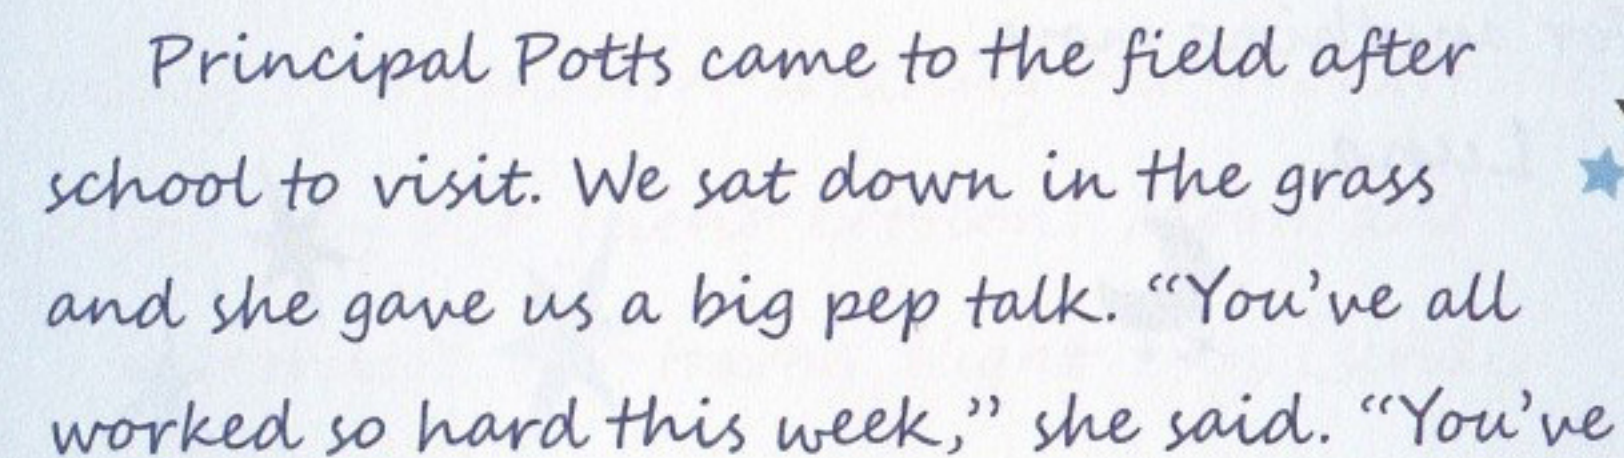 Principal Potts came to the field after
school to visit. We sat down in the grass
and she gave us a big pep talk. “You’ve all
worked so hard this week,” she said. “You’ve